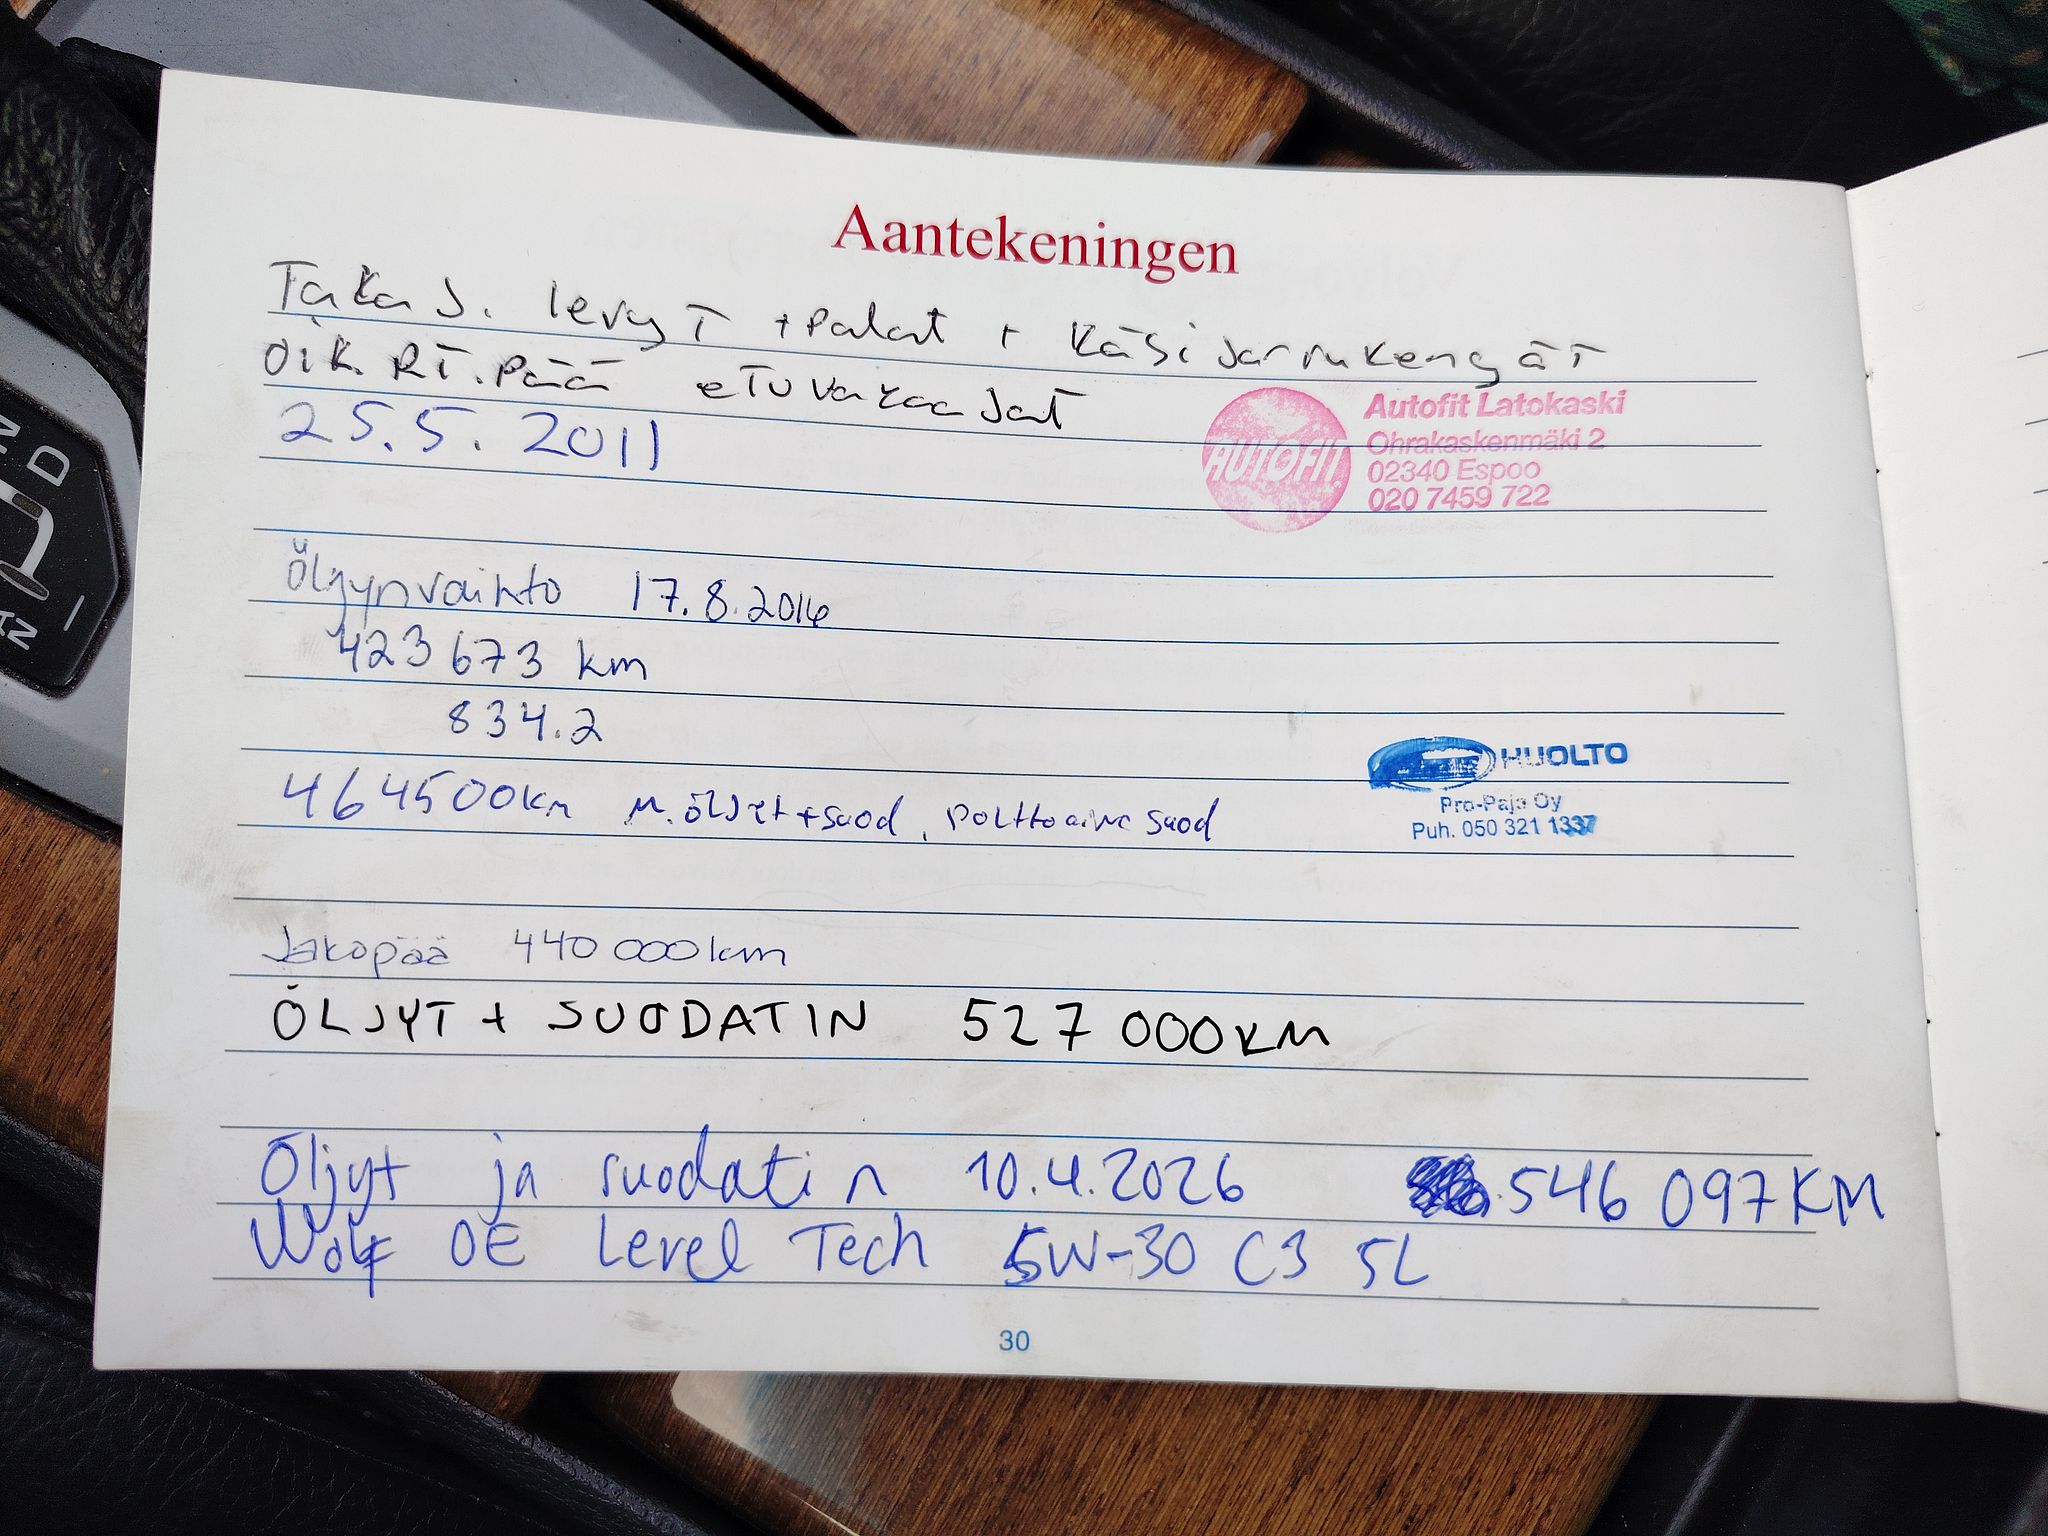 Aantekeningen
TakaJ. levyt + palat + käsijarrukengät
Oik. RT.pää etuvakaajat
25.5.2011
AUTOFIT
Autofit Latokaski
Ohrakaskenmäki 2
02340 Espoo
020 7459 722
Öljynvaihto 17.8.2016
423 673 km
834.2
HUOLTO
Pro-Paja Oy
Puh. 050 321 1337
464500km M.öljyt+suod, polttoaine suod
Jakopää 440 000 km
ÖLJYT + SUODATIN 527 000KM
Öljyt ja suodatin 10.4.2026 546 097KM
Wolf OE Level Tech 5W-30 C3 5L
30
N
D